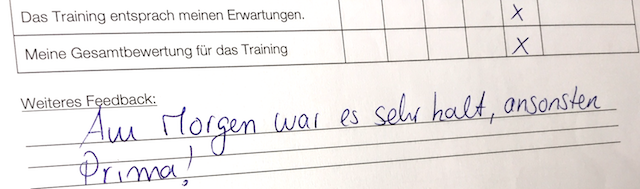 Das Training entsprach meinen Erwartungen. X
Meine Gesamtbewertung für das Training X
Weiteres Feedback:
Am Morgen war es sehr kalt, ansonsten
Prima!